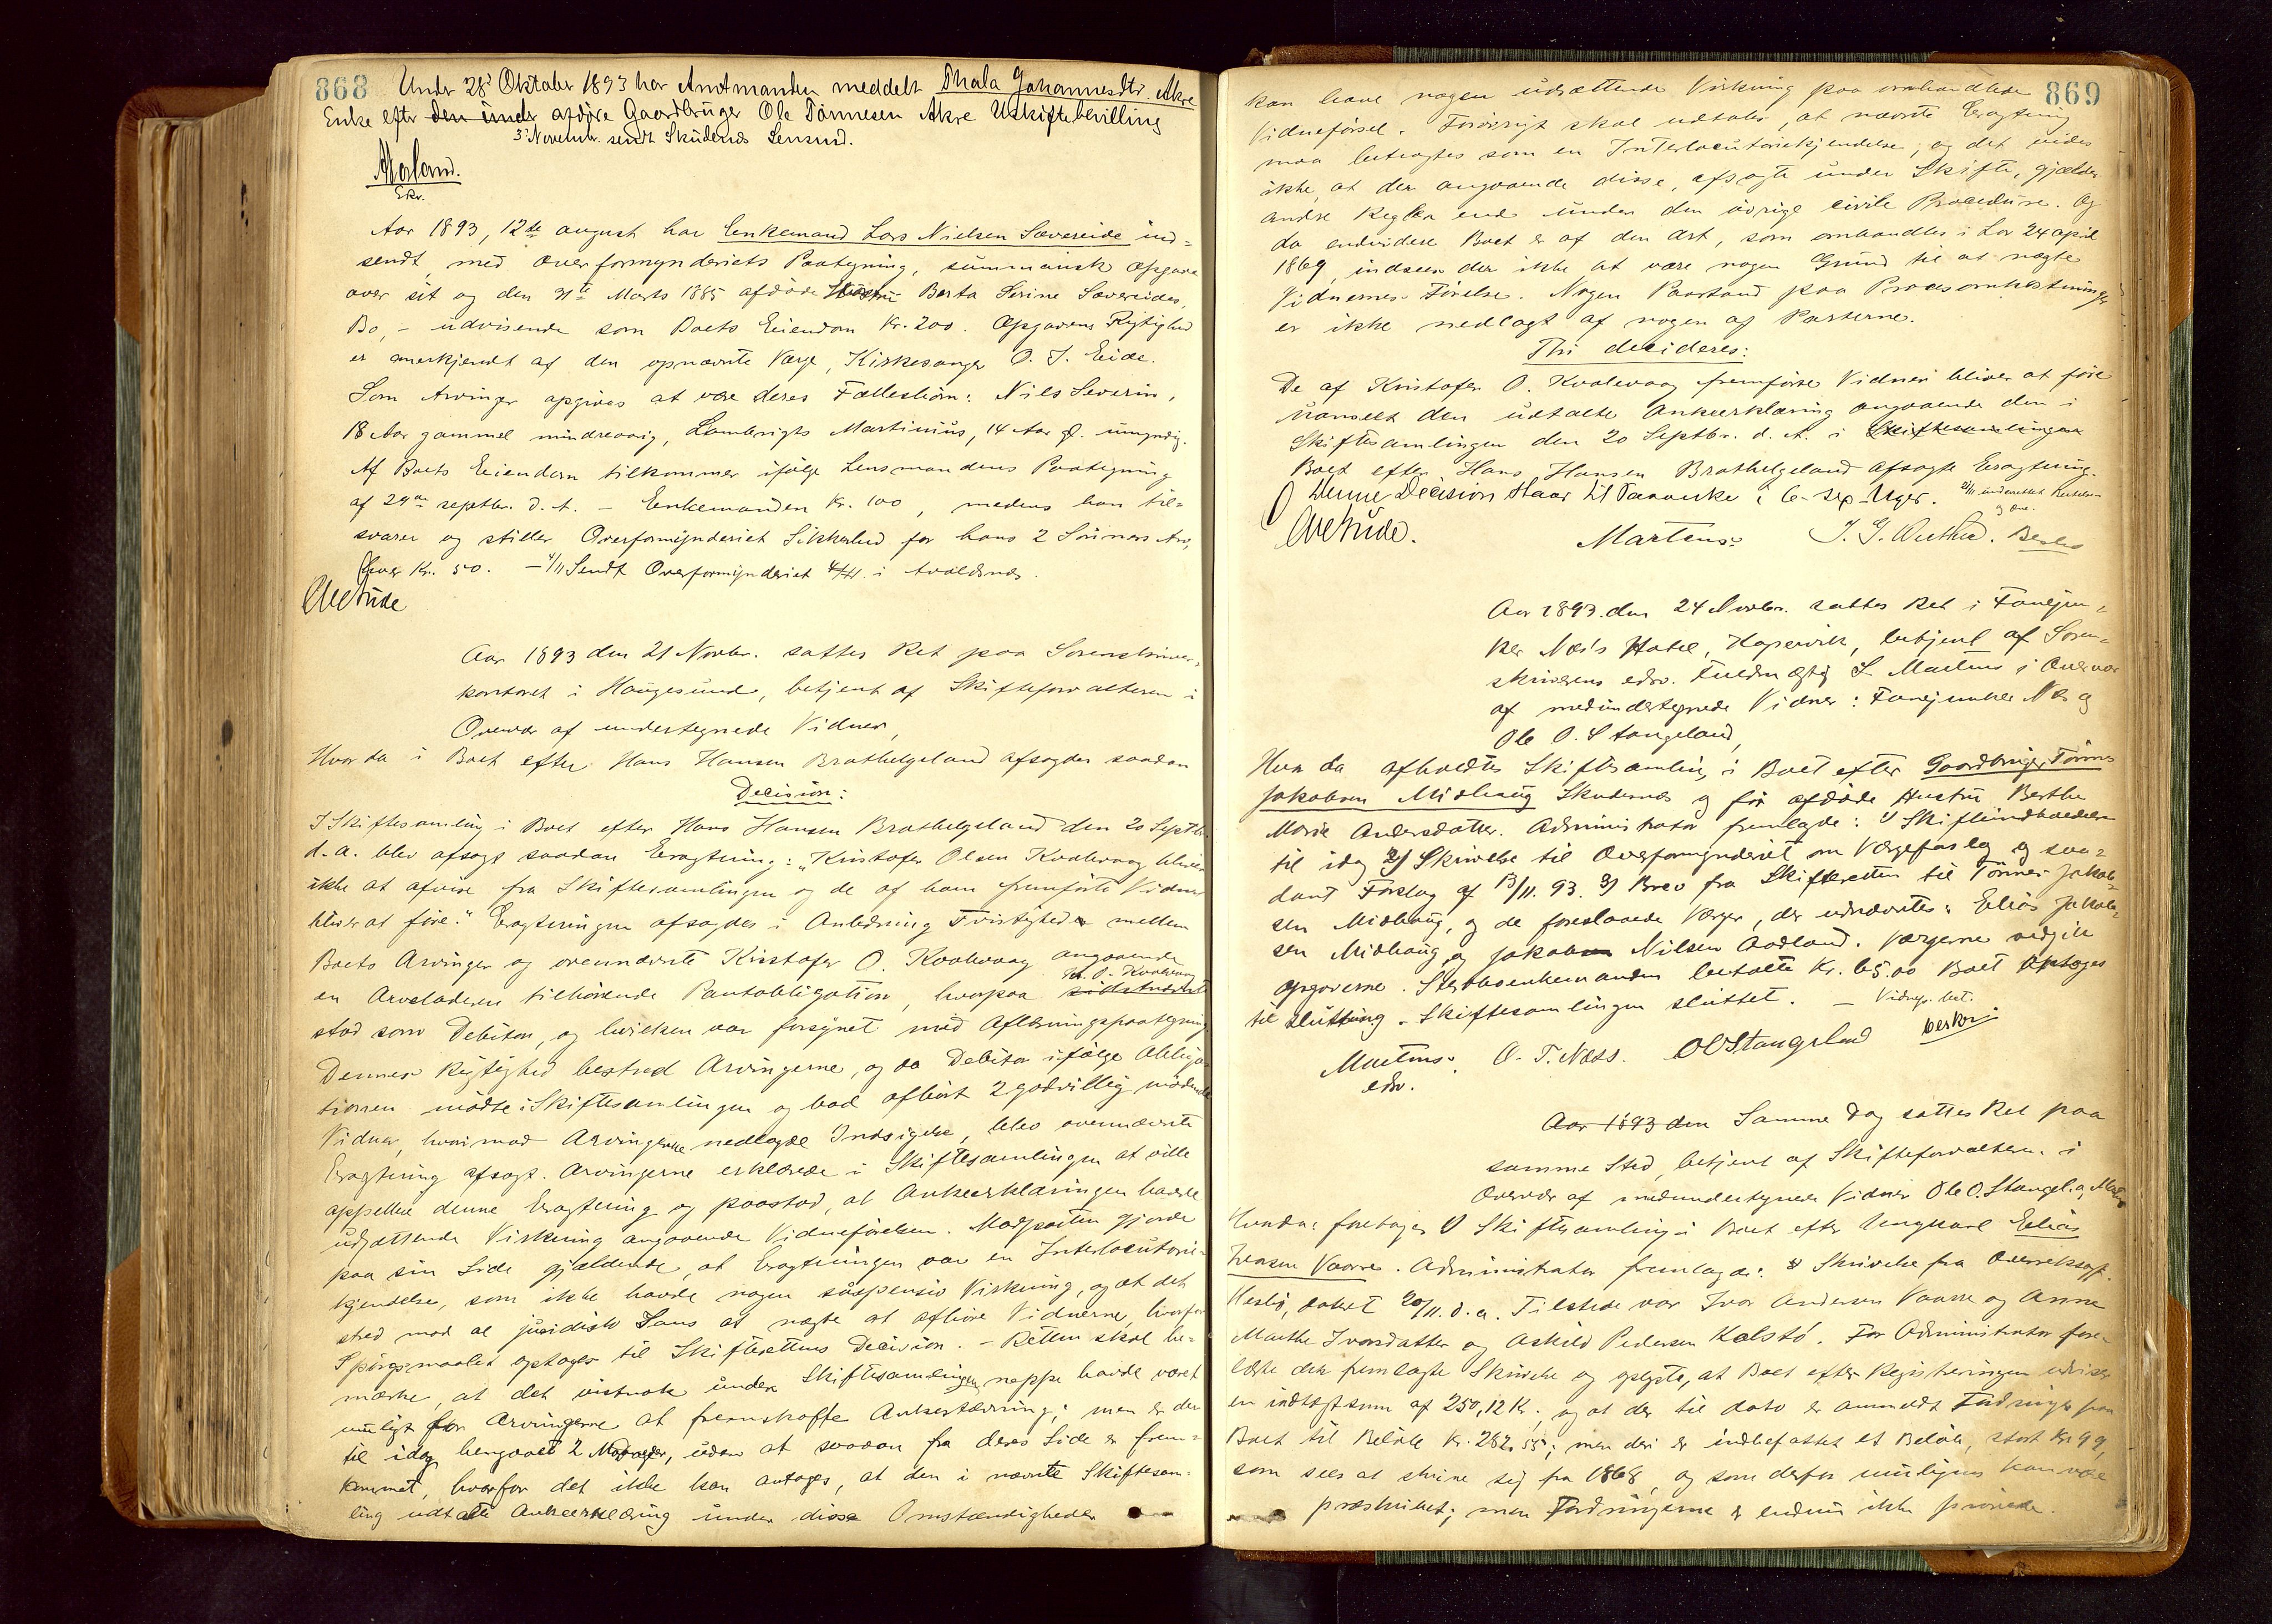 868
Under 28de Oktober 1893 har Amtmanden meddelt Thala Johannesdtr. Akre
Enke efter den under afdøde Gaardbruger Ole Tønnesen Akre Uskiftebevilling
3 Novembr. sendt Skudenes Lensmd.
Aar 1893, 12te august har Enkemand Lars Nielsen Sævereide ind-
sendt med Overformynderiets Paategning, summarisk Opgave
over sit og den 31te Marts 1885 afdøde Hustru Berta Serine Sævereides
Bo, - udvisende som Boets Eiendom Kr. 200. Opgavens Rigtighed
er anerkjendt af den opnævnte Verge, Kirkesanger O. J. Eide.
Som Arvinger opgives at være deres Fællesbørn: Nils Severin,
18 Aar gammel mindreaarig, Lambrigts Martinius, 14 Aar gl. umyndig.
Af Boets Eiendom tilkommer ifølge Lensmandens Paategning
af 29de septbr. d. A. - Enkemanden Kr. 100, medens han til-
svarer og stiller Overformynderiet Sikkerhed for hans 2 Sønners Arv,
hver Kr. 50. - 4/11 Sendt Overformynderiet 4/11. i Avaldsnes.
Aar 1893 den 21 Novbr. sattes Ret paa Sorenskriver-
kontoret i Haugesund, betjent af Skifteforvalteren i
Overvær af undertegnede Vidner,
Hvor da i Boet efter Hans Hansen Brathelgeland afsagdes saadan
Decision:
I Skiftesamling i Boet efter Hans Hansen Brathelgeland den 20 Septbr.
d. A. blev afsagt saadan Eragtning: "Kristofer Olsen Kvalevaag bliver
ikke at afvise fra Skiftesamlingen og de af ham fremførte Vidner
bliver at føre." Eragtningen afsagdes i Anledning Tvistigheder mellem
Boets Arvinger og ovennævnte Kristofer O. Kvalevaag angaaende
en Arveladeren tilhørende Pantobligation, hvorpaa sidstnævnte Kr. O. Kvalevaag
stod som Debitor, og hvilken var forsynet med Aflæsningspaategning
Dennes Rigtighed bestred Arvingerne, og da Debitor ifølge Obliga-
tionen mødte i Skiftesamlingen og bad afhørt 2 godvillig mødende
Vidner, hvorimod Arvingerne nedlagde Indsigelse, blev ovennævnte
Eragtning afsagt. Arvingerne erklærede i Skiftesamlingen at ville
appellere denne Eragtning og paastod, at Ankeerklæringen havde
udsættende Virkning angaaende Vidneførelsen. Modparten gjorde
paa sin Side gjældende, at Eragtningen var en Interlocutorie-
kjendelse, som ikke havde nogen suspensiv Virkning, og at det
stred mod al juridisk Sans at nægte at afhøre Vidnerne, hvorfor
Spørgsmaalet optages til Skifterettens Decision. - Retten skal be-
mærke, at det vistnok under Skiftesamlingen neppe havde været
muligt for Arvingerne at fremskaffe Ankestævning; men er der
til idag hengaaet 2 Maaneder, uden at saadan fra deres Side er frem-
kommet, hvorfor det ikke kan antages, at den i nævnte Skiftesam-
ling udtalte Ankeerklæring under disse Omstændigheder
869
kan have nogen udsættende Virkning paa omhandlede
Vidneførsel. Forøvrigt skal udtales, at nævnte Eragtning
maa betragtes som en Interlocutoriekjendelse, og det vides
ikke, at der angaaende disse, afsagte under Skifte, gjælder
andre Regler end under den øvrige civile Procedure. Og
da endvidere Boet er af den Art, som omhandles i Lov 24 april
1869, indsees der ikke at være nogen Grund til at nægte
Vidnernes Førelse. Nogen Paastand paa Procesomkostninger
er ikke nedlagt af nogen af Parterne.
Thi decideres:
De af Kristofer O. Kvalevaag fremførte Vidner bliver at føre
uanseet den udtalte Ankeerklæring angaaende den i
Skiftesamlingen den 20 Septbr. d. A. i Skiftesamlingen
Boet efter Hans Hansen Brathelgeland afsagte Eragtning.
Denne Decision staar til Paaanke i 6 - sex - Uger.
Martens.
Aar 1893 den 24 Novbr. sattes Ret i Fanejun-
ker Næs's Hotel, Kopervik, betjent af Soren-
skriverens edsv. Fuldmægtig S. Martens i Overvær
af medundertegnede Vidner: Fanejunker Næs og
Ole O. Stangeland,
Hvor da afholdtes Skiftesamling i Boet efter Gaardbruger Tønnes
Jakobsen Midhaug Skudenes og før afdøde Hustru Berthe
Marie Andersdatter. Administrator fremlagde: 1) Skifteindkaldelse
til idag 2) Skrivelse til Overformynderiet om Vergeforslag og saa-
dant Forslag af 13/11. 93. 3) Brev fra Skifteretten til Tønnes Jakob-
sen Midhaug, og de foreslaaede Verger, der udnævntes: Elias Jakob-
sen Midhaug og Jakob Nilsen Aadland. Vergerne vedgik
Opgaverne. Sterboenkemanden betalte Kr. 65.00 Boet optoges
til Slutning. Skiftesamlingen sluttet. - Vidnep. bet.
Martens. O. T. Næss. O O Stangeland
edsv.
Aar 1893 den Samme Dag sattes Ret paa
samme Sted, betjent af Skifteforvalteren i
Overvær af medundertegnede Vidner Ole O. Stangel. o,
Hvorda: foretages Skiftesamling i Boet efter Ungkarl Elias
Iversen Vaarre. Administrator fremlagde: Skrivelse fra Overretssagf.
dateret 20/11. d. a. Tilstede var Ivar Andersen Vaarre og Anne
Marthe Ivarsdatter og Askild Pedersen Kalstø. For Administrator fore-
læste den fremlagte Skrivelse og oplyste, at Boet efter Registreringen udviser
en indtægtsum af 250,12 Kr. og at der til dato er anmeldt Fordringer paa
Boet til Beløb Kr. 282,55; men deri er indbefattet et Beløb, stort Kr 99,
som sees at skrive sig fra 1868, og som derfor muligens kan være
præskribert; men Fordringerne er endnu ikke prøvede.